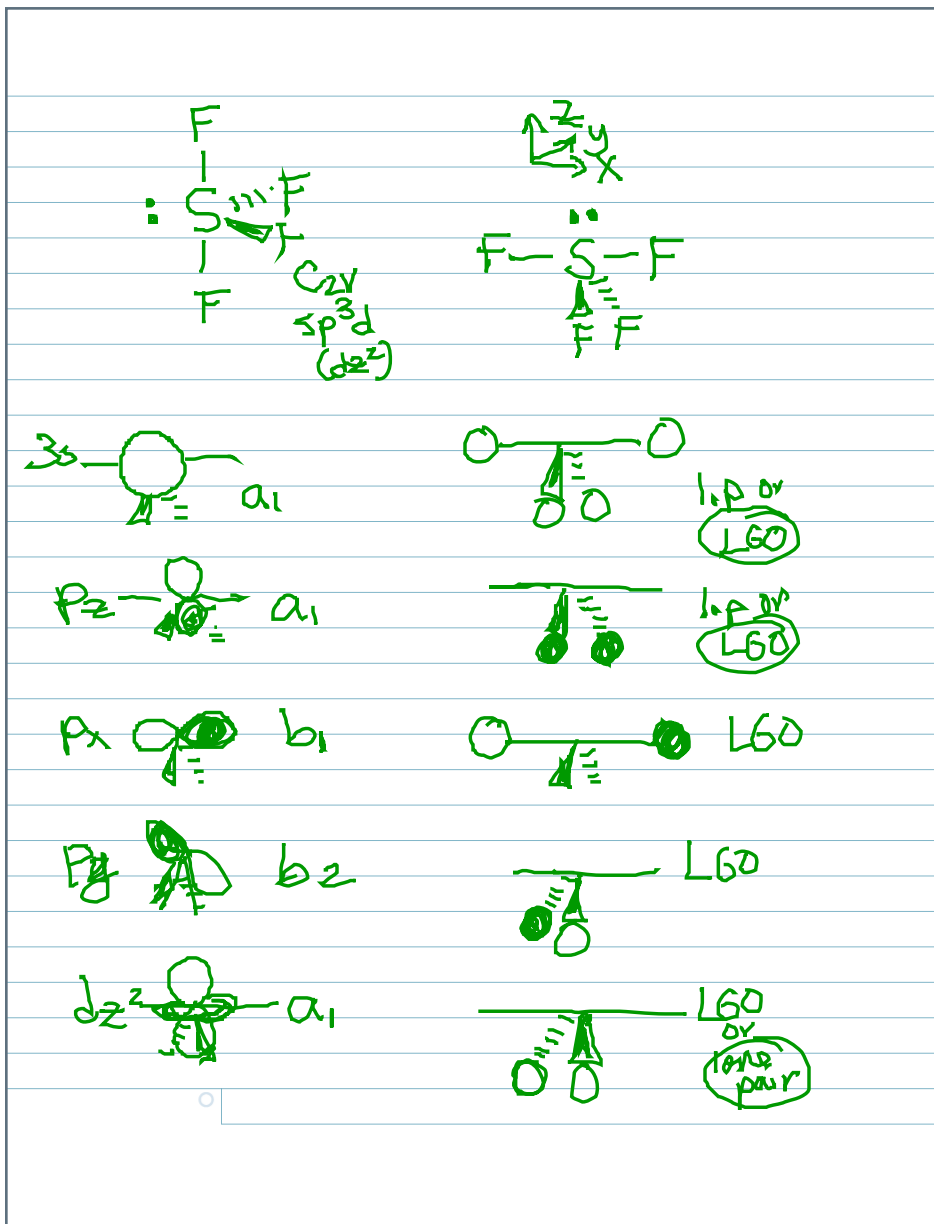 F
S F
: F
F
C2v
sp³d
(dz²)
z
y
x
F S F
F F
3s a1
l.p or
LGO
pz a1
l.p or
LGO
px b1 LGO
py b2 LGO
dz² a1 LGO
or
lone
pair